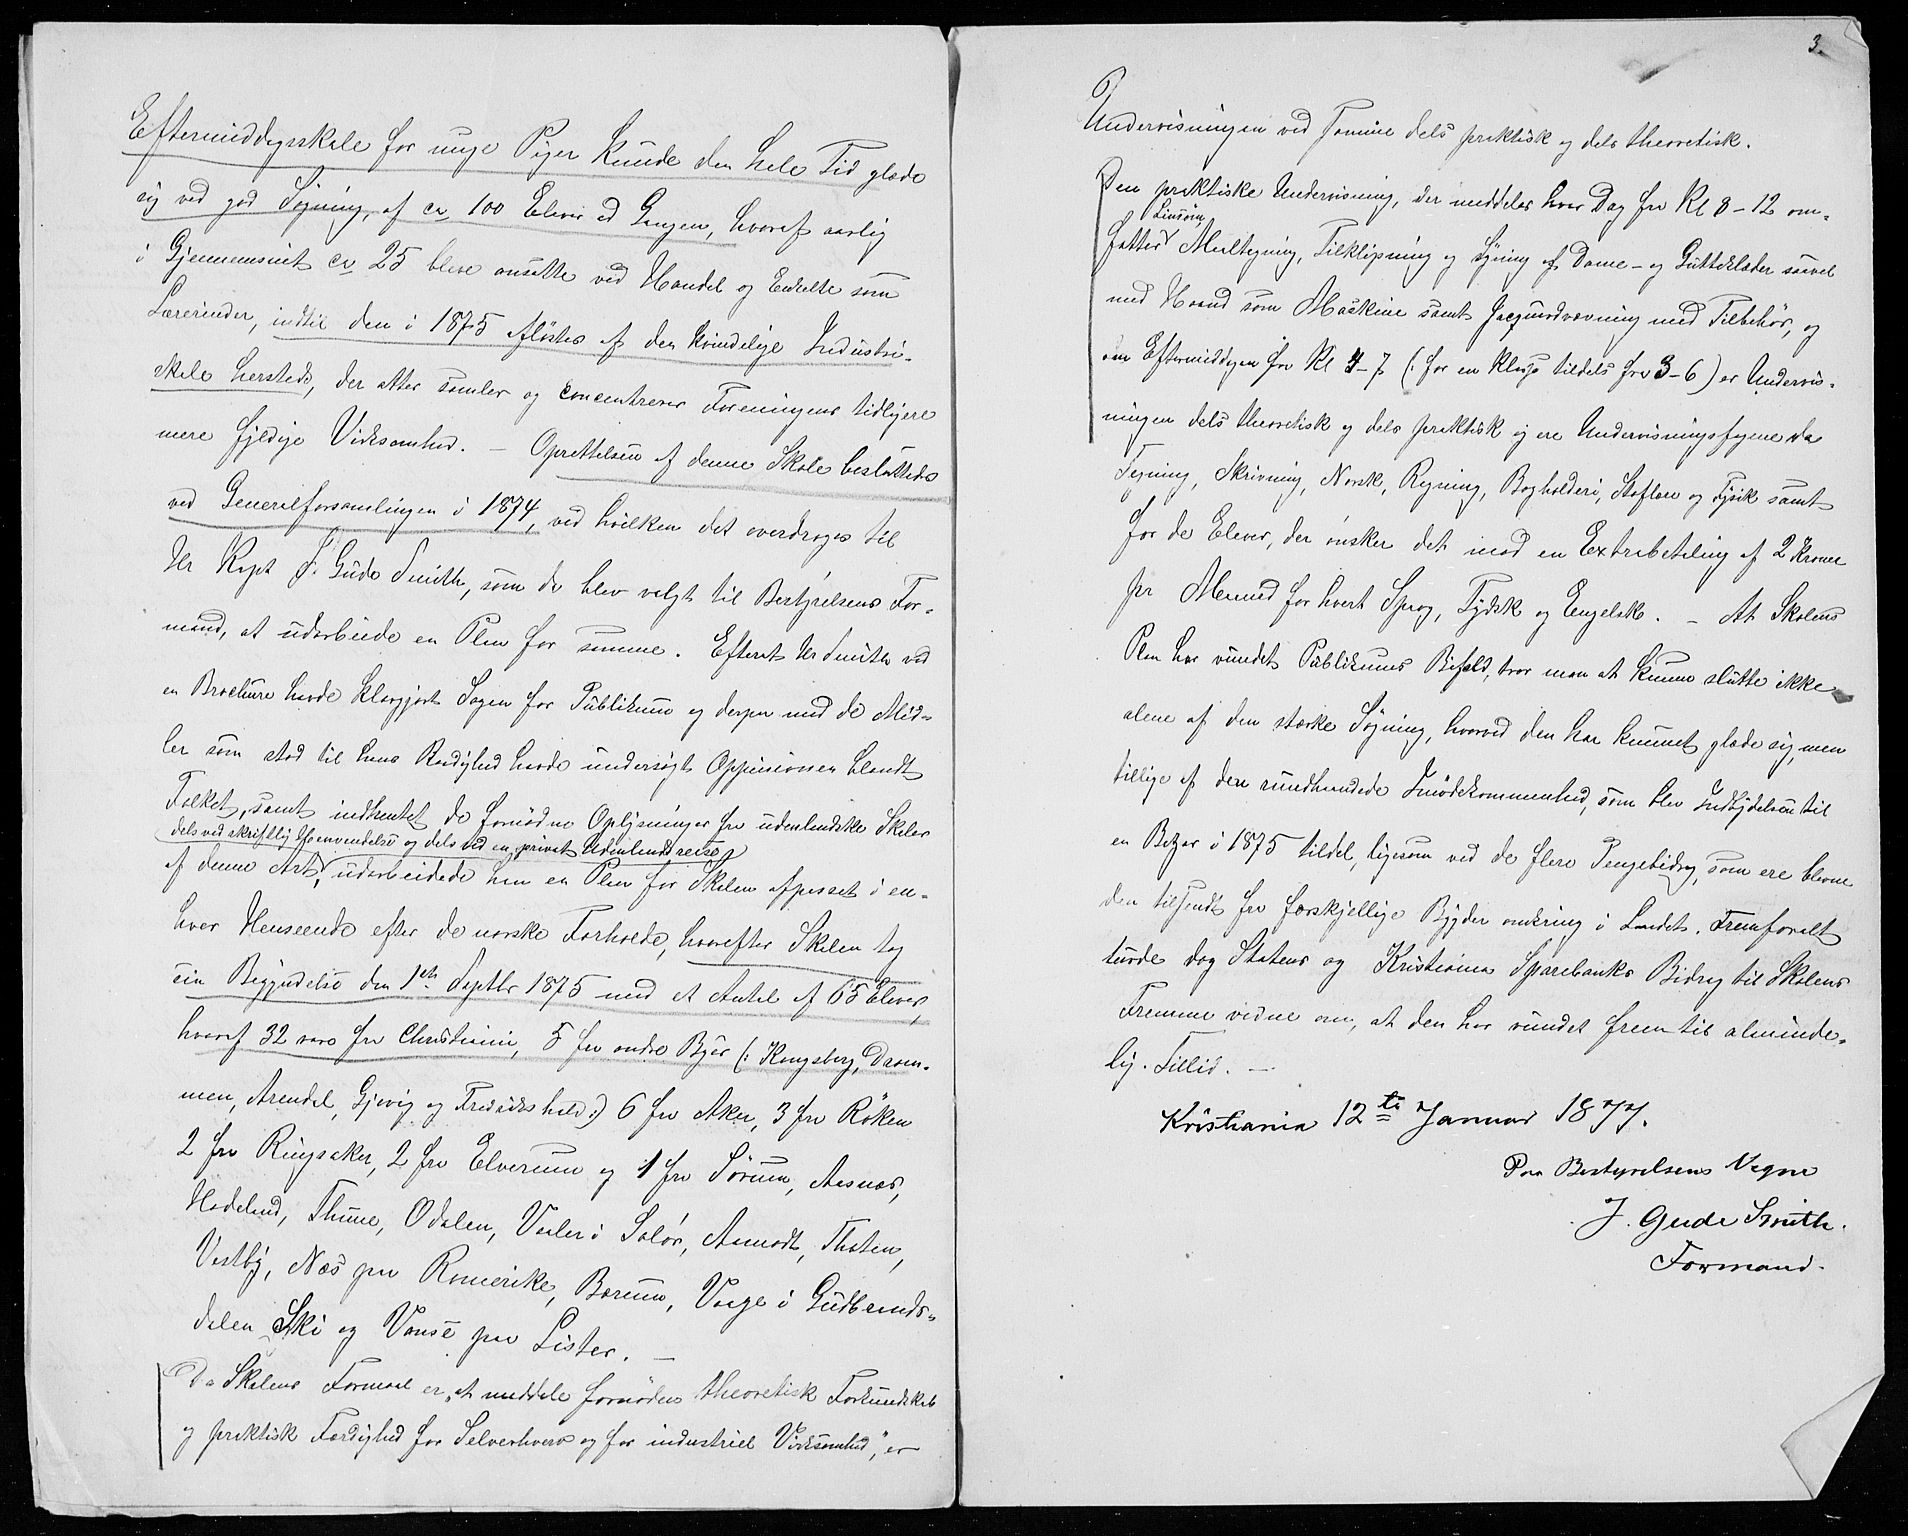 Eftermiddagsskole for unge Piger kunde den hele Tid glæde
sig ved god Søgning, af ca 100 Elever ad Gangen, hvoraf aarlig
i Gjennemsnit ca 25 bleve ansatte ved Handel og Enkelte som
Lærerinder, indtil den i 1875 afløstes af den kvindelige Industri-
skole hersteds, der atter samler og concentrerer Foreningens tidligere
mere fyldige Virksomhed. – Oprettelsen af denne Skole besluttedes
ved Generalforsamlingen i 1874, ved hvilken det overdroges til
Hr Kapt J. Gude Smith, som da blev valgt til Bestyrelsens For-
mand, at udarbeide en Plan for samme. Efterat Hr Smith ved
en Brochure havde klargjort Sagen for Publikum og derpaa med de Mid-
ler som stod til hans Raadighed havde undersøgt Oppinionen blandt
Folket, samt indhentet de fornødne Oplysninger fra udenlandske Skoler
dels ved skriftlig Henvendelse og dels ved en privat Udenlandsreise
af denne Art, udarbeidede han en Plan for Skolen afpasset i en-
hver Henseende efter de norske Forholde, hvorefter Skolen tog
sin Begyndelse den 1ste Septbr 1875 med et Antal af 65 Elever,
hvoraf 32 vare fra Christiania, 5 fra andre Byer (: Kongsberg, Dram-
men, Arendal, Gjøvig og Fredrikshald :) 6 fra Aker, 3 fra Røken
2 fra Ringsaker, 2 fra Elverum og 1 fra Sørum, Aasnæs,
Hadeland, Thune, Odalen, Vaaler i Solør, Aamodt, Thoten,
Vestby, Næs paa Romerike, Bærum, Vaage i Gudbrands-
dalen Ski og Vanse paa Lister. –
Da Skolens Formaal er "at meddele fornøden theoretisk Forkundskab
og praktisk Færdighed for Selverhverv og for industriel Virksomhed", er
3.
Undervisningen ved samme dels praktisk og dels theoretisk.
Den praktiske Undervisning, der meddeles hver Dag fra Kl 8–12 om-
Linsøm,
fatter Maaltagning, Tilklipning og Syning af Dame- og Gutteklæder saavel
med Haand som Maskine samt Jacquardvævning med Tilbehør, og
om Eftermiddagen fra Kl 4–7 (: for en Klasse tildels fra 3–6) er Undervis-
ningen dels theoretisk og dels praktisk og ere Undervisningsfagene da
Tegning, Skrivning, Norsk, Regning, Bogholderi, Stoflære og Fysik samt
for de Elever, der ønsker det mod en Extrabetaling af 2 Kroner
pr Maaned for hvert Sprog, Tydsk og Engelsk. – At Skolens
Plan har vundet Publikums Bifald, tror man at kunne slutte ikke
alene af den stærke Søgning, hvorved den har kunnet glæde sig, men
tillige af den rundhaandede Imødekommenhed, som blev Indbydelsen til
en Bazar i 1875 tildel, ligesom ved de flere Pengebidrag, som ere blevne
den tilsendt fra forskjellige Bygder omkring i Landet. Fremforalt
turde dog Statens og Kristiania Sparebanks Bidrag til Skolens
Fremme vidne om, at den har vundet frem til alminde-
lig Tillid. –
Kristiania 12te Januar 1877.
Paa Bestyrelsens Vegne
J. Gude Smith.
Formand.